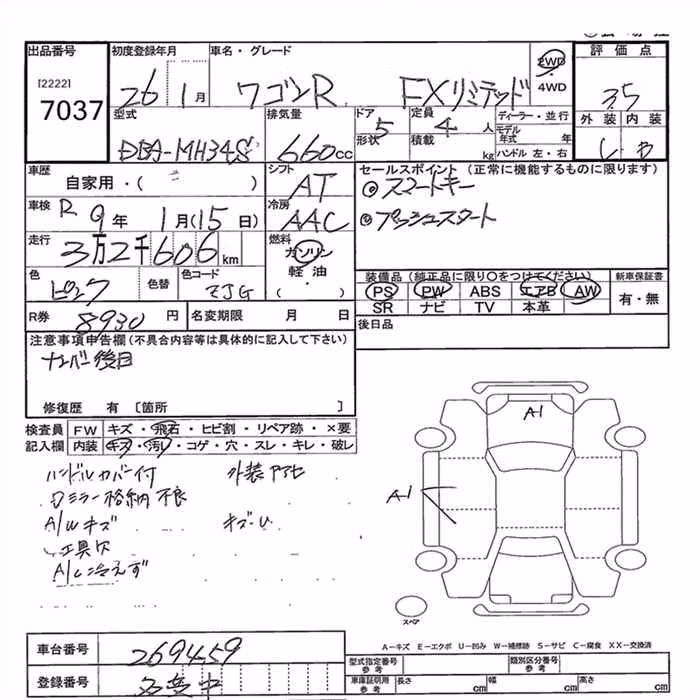 出品番号 初度登録年月 車名・グレード 評価点
[2222]
7037
26 1月 ワゴンR FXリミテッド 2WD・4WD 3.5
型式 排気量 ドア 5 定員 4人 ディーラー・並行 外装 内装
形状 積載 kg モデル年式 年 ハンドル 左・右
DBA-MH34S 660cc
車歴 自家用・( ) シフト AT セールスポイント(正常に機能するものに限ります)
◎スマートキー
車検 R9年 1月(15日) 冷房 AAC
◎プッシュスタート
走行 3万2千606km 燃料 ガソリン・軽油・( )
色 ピンク 色替 色コード ZJG
装備品(純正品に限り○をつけてください) 新車保証書
PS PW ABS エアB AW 有・無
SR ナビ TV 本革
R券 8930円 名変期限 月 日 後日品
注意事項申告欄(不具合内容等は具体的に記入して下さい)
ナンバー後日
修復歴 有[箇所 ]
検査員 FW キズ・飛石・ヒビ割・リペア跡・×要
記入欄 内装 キズ・汚れ・コゲ・穴・スレ・キレ・破レ
ハンドルカバー付 外装アセ
ミラー格納不良
A/Wキズ キズ・U
工具欠
A/C冷えず
A1
A1
スペア
A−キズ E−エクボ U−凹み W−補修跡 S−サビ C−腐食 XX−交換済
車台番号 269459
登録番号 名変中
型式指定番号 参考 類別区分番号 参考
車庫証明用 参考 長さ cm 幅 cm 高さ cm